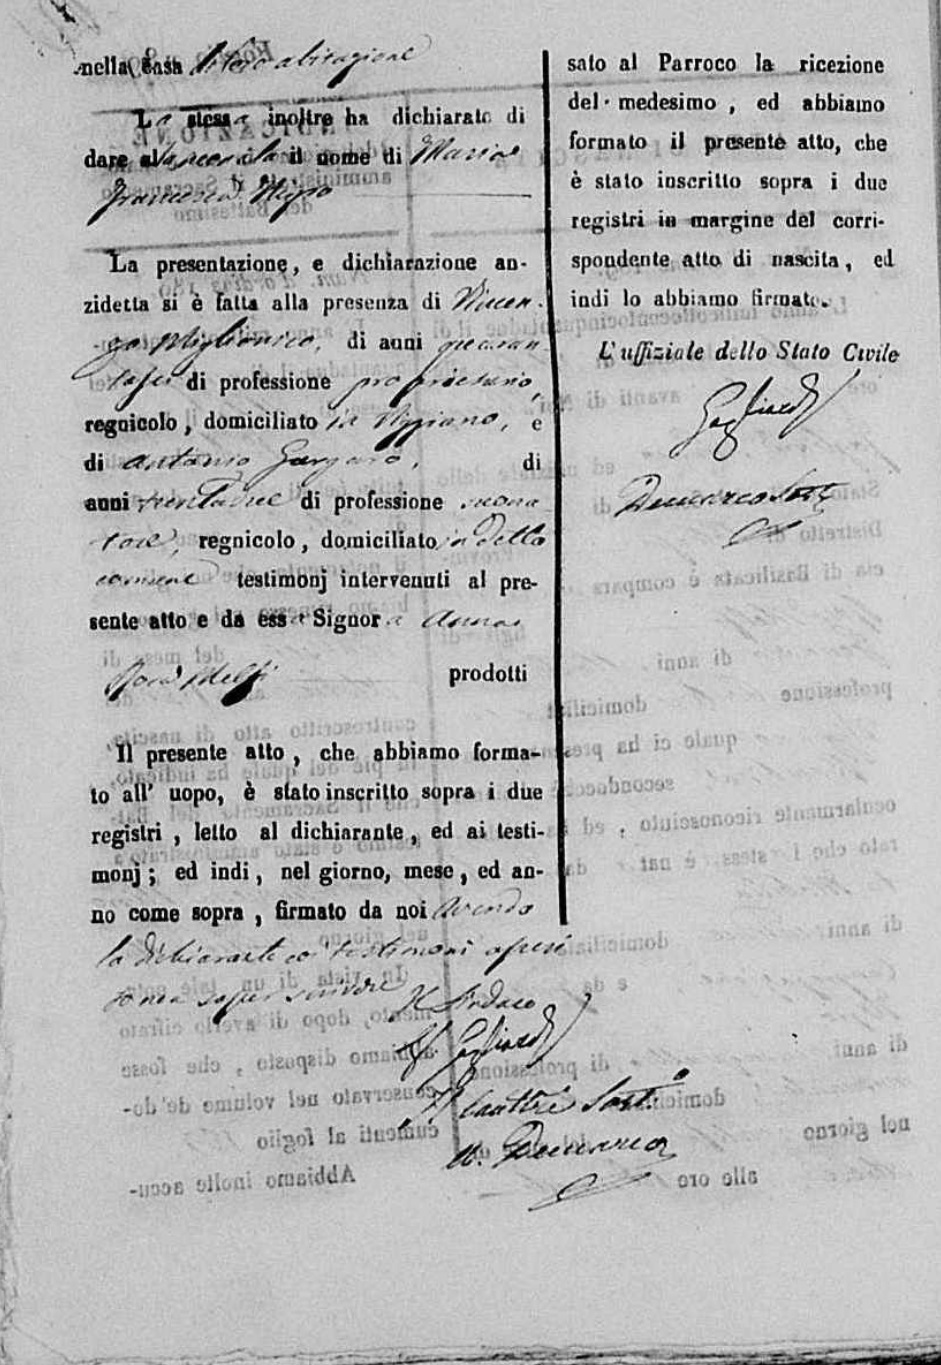 nella Casa di loro abitazione
La stessa inoltre ha dichiarato di
dare alla neonata il nome di Maria
Francesca Nigro
La presentazione, e dichiarazione an-
zidetta si è fatta alla presenza di Vincen-
zo Miglionico, di anni quaran
tasei di professione proprietario,
regnicolo, domiciliato in Viggiano, e
di Antonio Gargaro, di
anni trentadue di professione suona
tore, regnicolo, domiciliato in detto
comune testimonj intervenuti al pre-
sente atto e da essa Signora Anna
prodotti
Il presente atto, che abbiamo forma-
to all' uopo, è stato inscritto sopra i due
registri, letto al dichiarante, ed ai testi-
monj; ed indi, nel giorno, mese, ed an-
no come sopra, firmato da noi avendo
la dichiarante e i testimoni asseri
to non saper scrivere
Il Sindaco
Gagliardi
Il Cancelliere Sost.
Demarco
sato al Parroco la ricezione
del medesimo, ed abbiamo
formato il presente atto, che
è stato inscritto sopra i due
registri in margine del corri-
spondente atto di nascita, ed
indi lo abbiamo firmato.
L' uffiziale dello Stato Civile
Gagliardi
Demarco Sost.